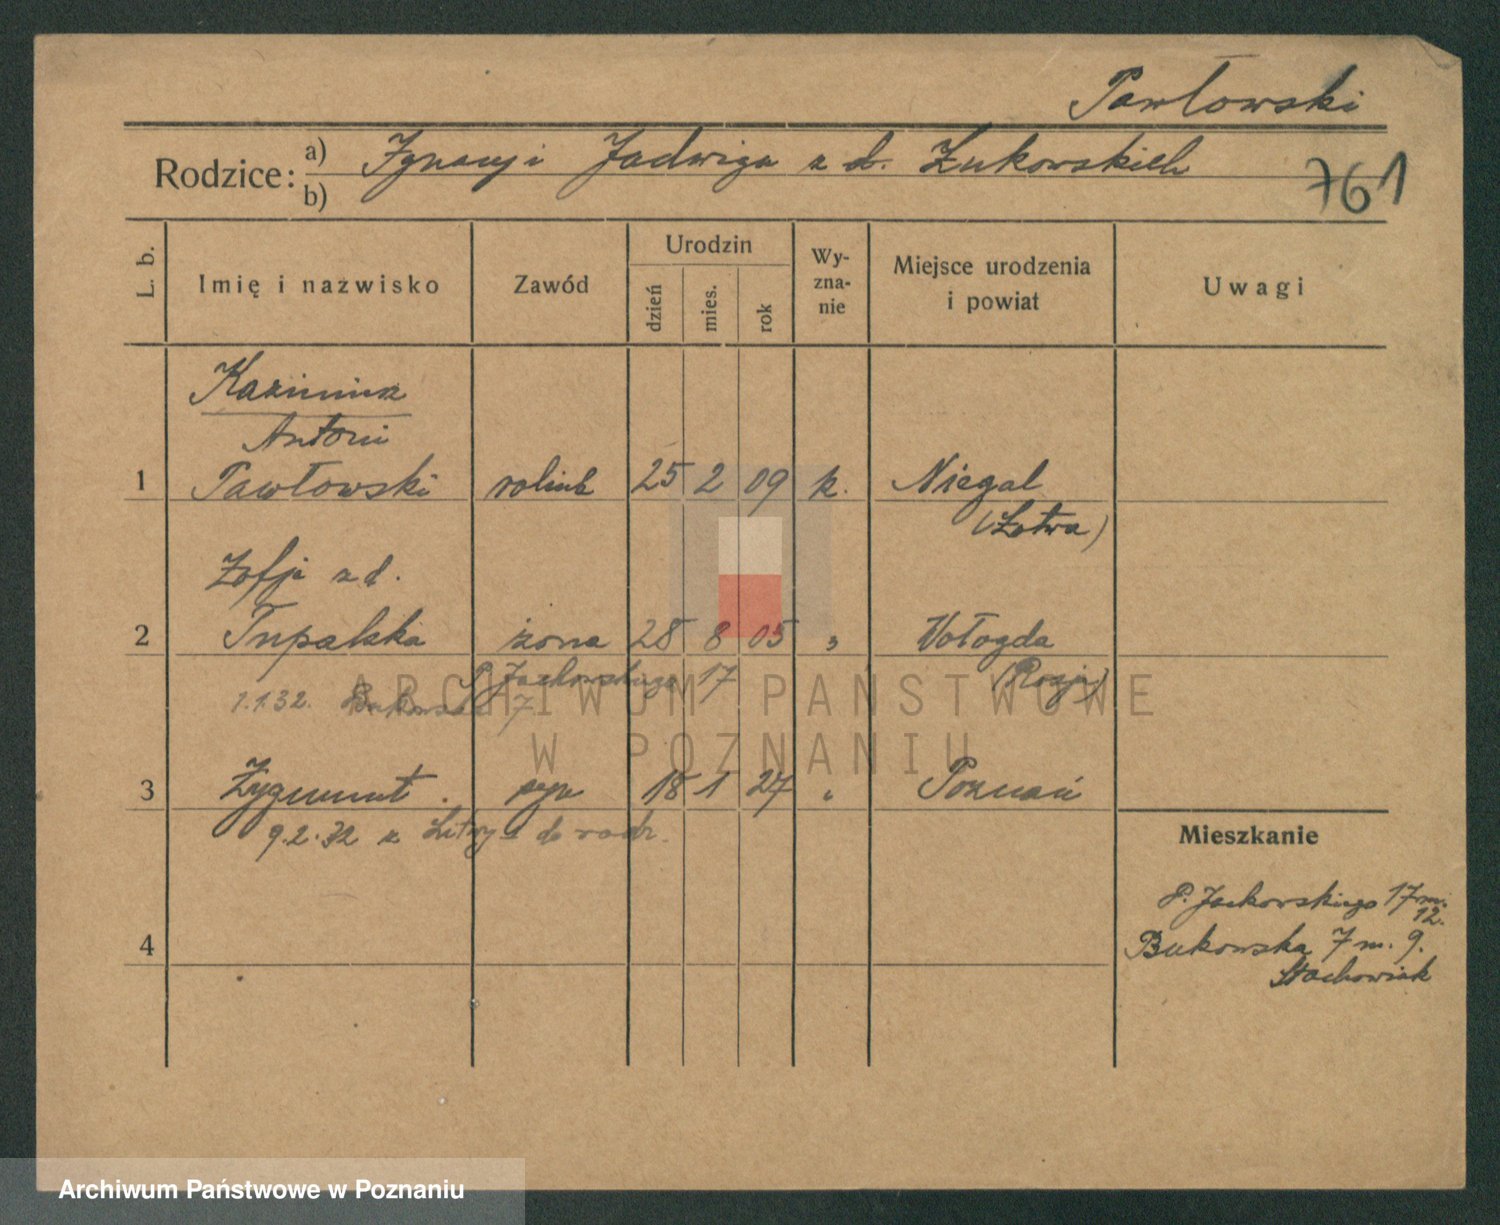 Pawłowski
Rodzice: a) Ignacy i Jadwiga z d. Żukowskich
b)
761
L. b.
Imię i nazwisko
Zawód
Urodzin
dzień
mies.
rok
Wy-
zna-
nie
Miejsce urodzenia
i powiat
Uwagi
Kazimierz
Antoni
1 Pawłowski rolnik 25 2 09 k. Niegal
(Łotwa)
Zofja z d.
2 Tupalska żona 28 8 05 " Wołogda
P. Jackowskiego 17 (Rosja)
1.1.32. Bukowska 7
3 Zygmunt syn 18 1 27 " Poznań
9.2.32 z Litwy do rodz.
4
Mieszkanie
P. Jackowskiego 17 m.
12.
Bukowska 7 m. 9.
Stachowiak
ARCHIWUM PAŃSTWOWE
W POZNANIU
Archiwum Państwowe w Poznaniu